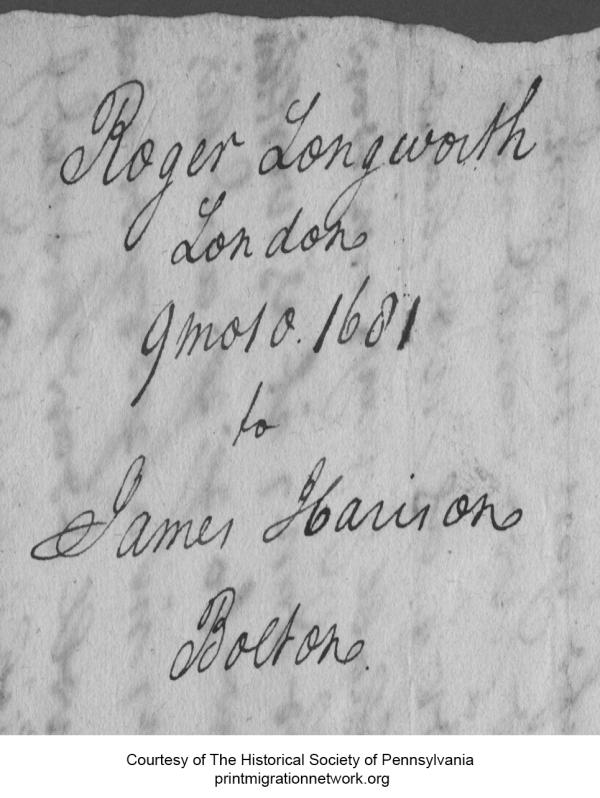 Roger Longworth
London
9 mo 10. 1681
to
James Harison
Bolton.
Courtesy of The Historical Society of Pennsylvania
printmigrationnetwork.org